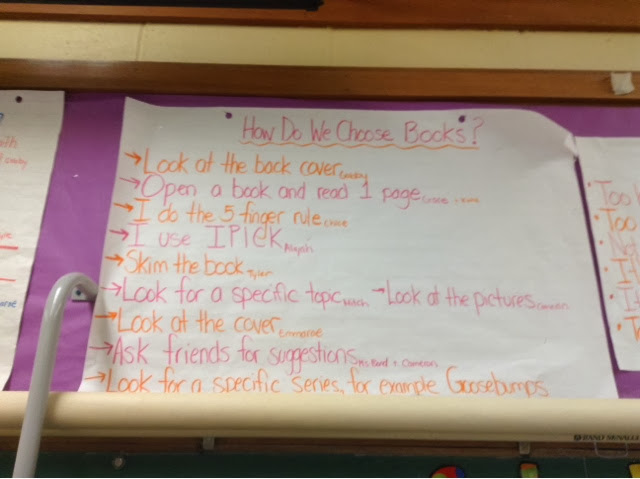 How Do We Choose Books?
→Look at the back cover
→Open a book and read 1 page
→I do the 5 finger rule
→I use IPICK
→Skim the book Tyler
→Look for a specific topic →Look at the pictures
→Look at the cover
→Ask friends for suggestions
→Look for a specific series, for example Goosebumps
Too
Too